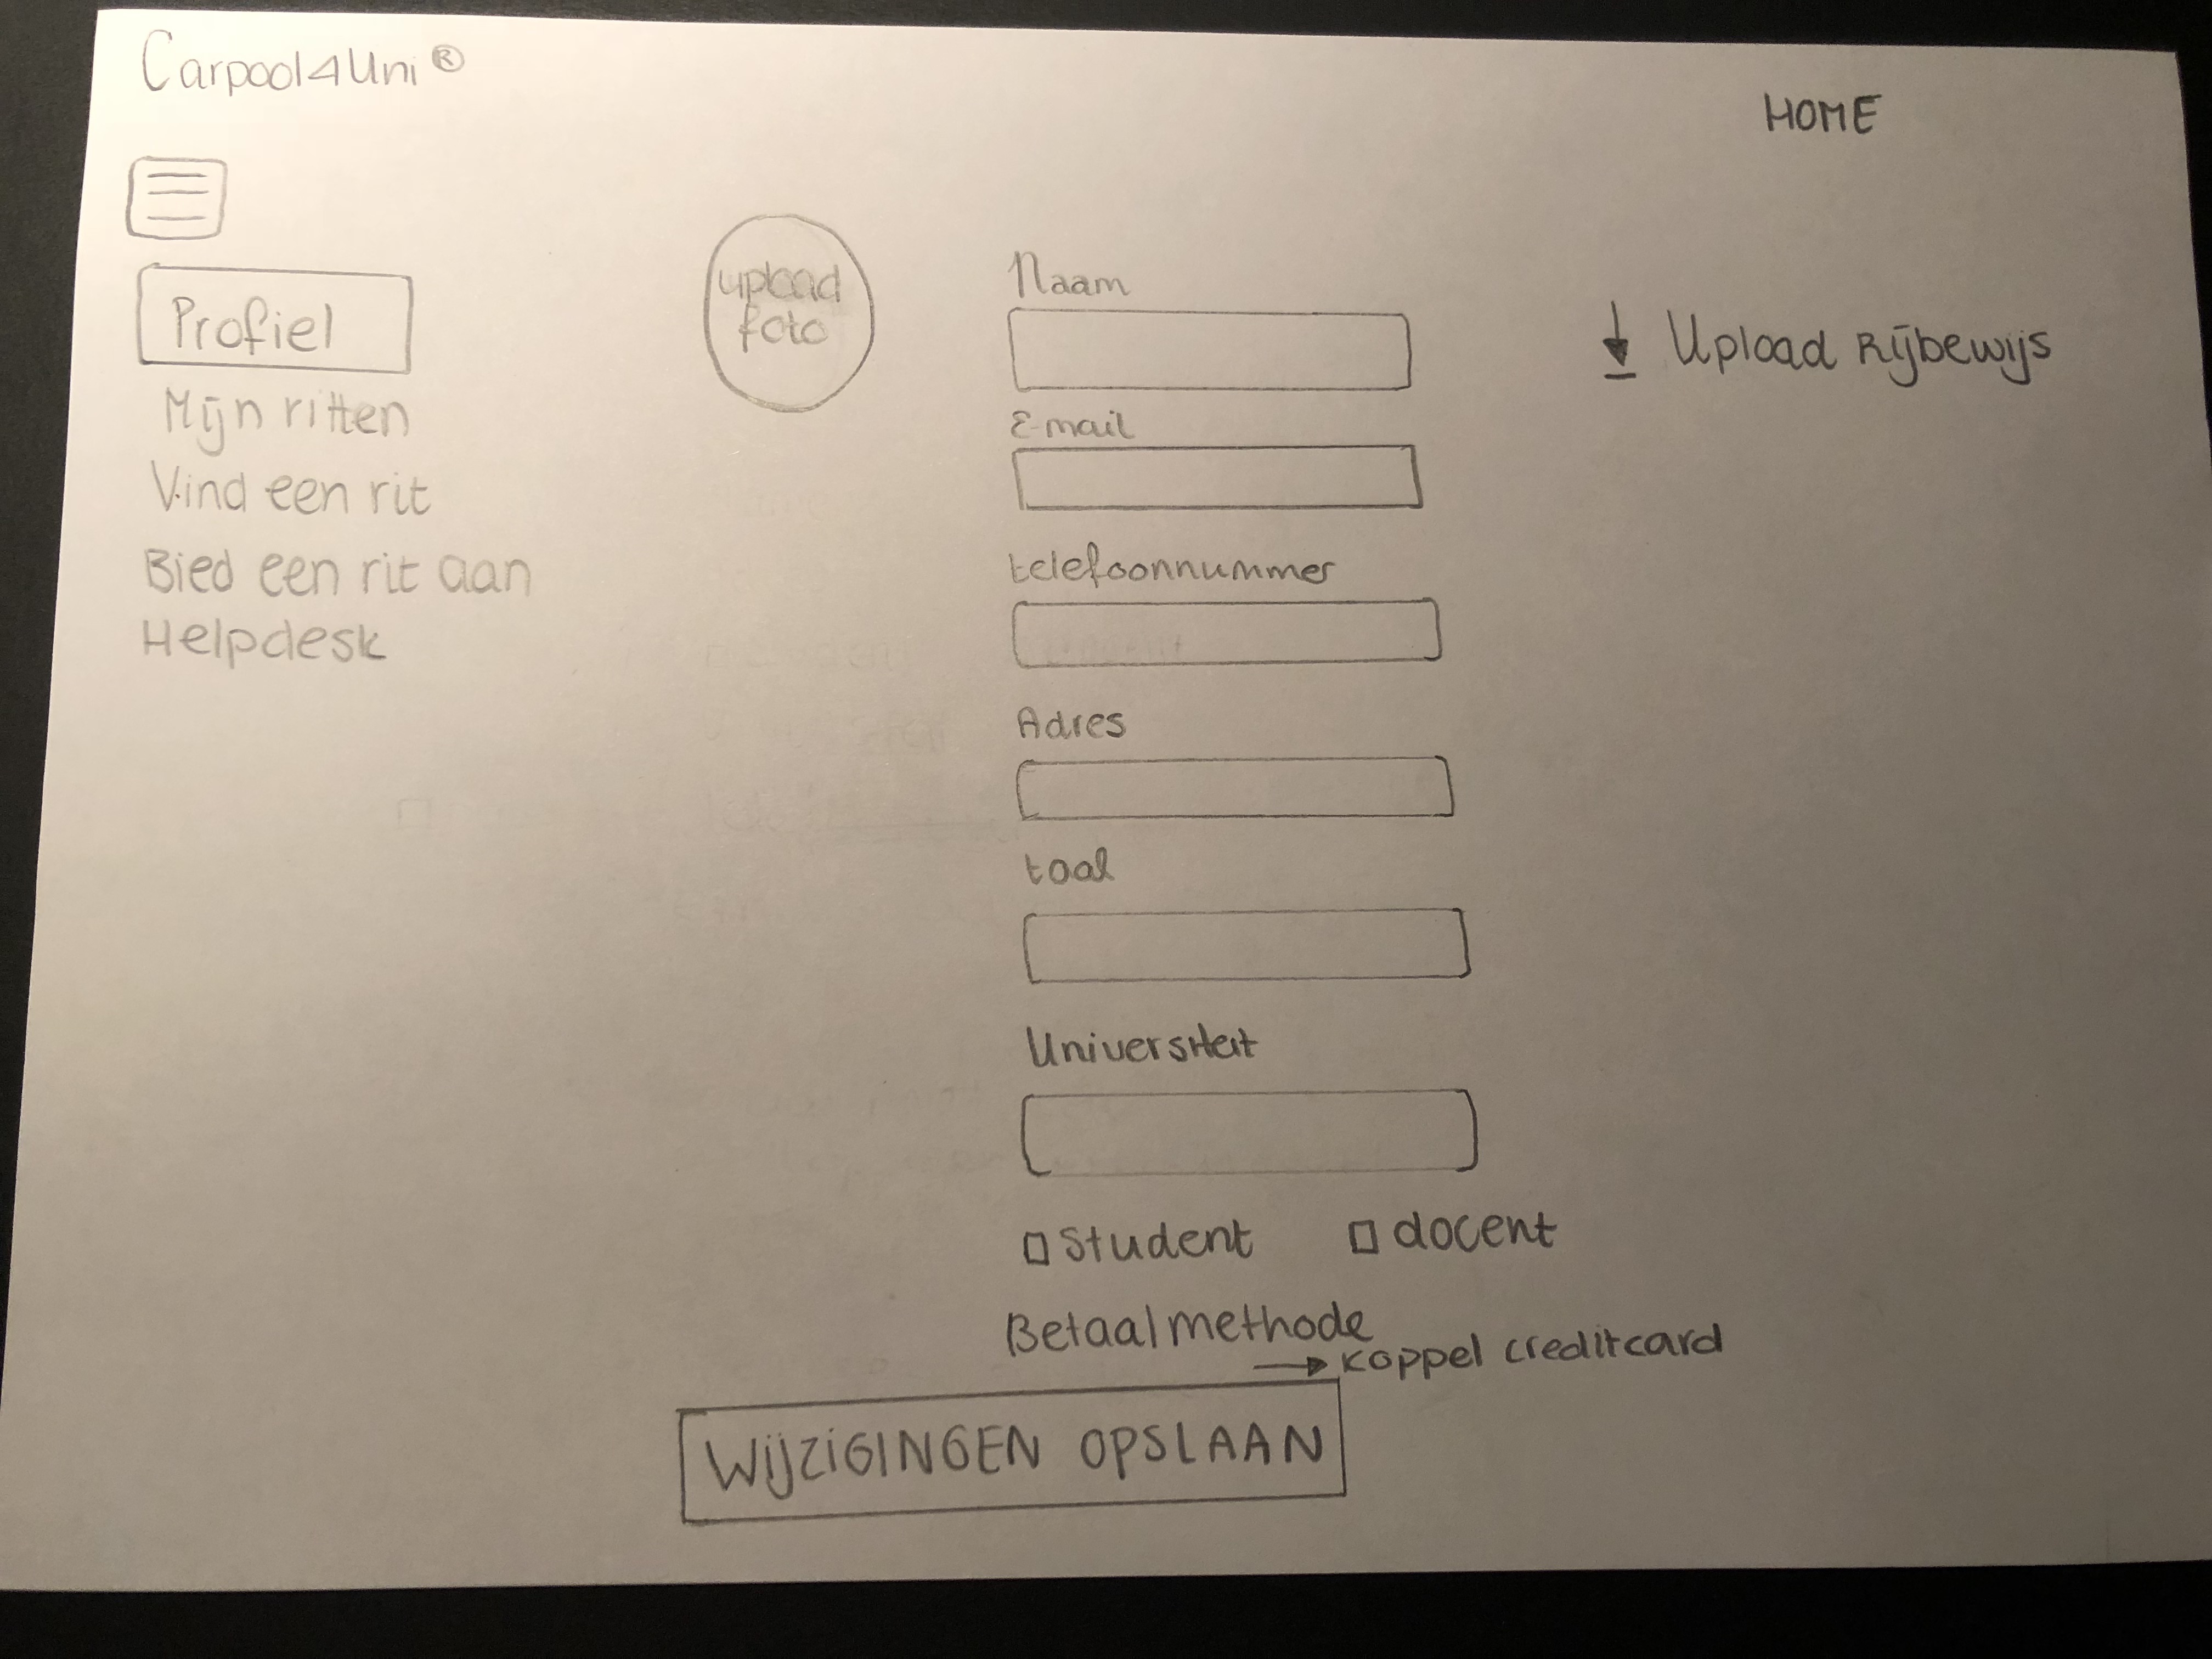 Carpool4Uni ®
HOME
Profiel
Mijn ritten
Vind een rit
Bied een rit aan
Helpdesk
upload
foto
Naam
E-mail
telefoonnummer
Adres
taal
Universiteit
student
docent
Betaalmethode
→ koppel creditcard
WIJZIGINGEN OPSLAAN
Upload Rijbewijs